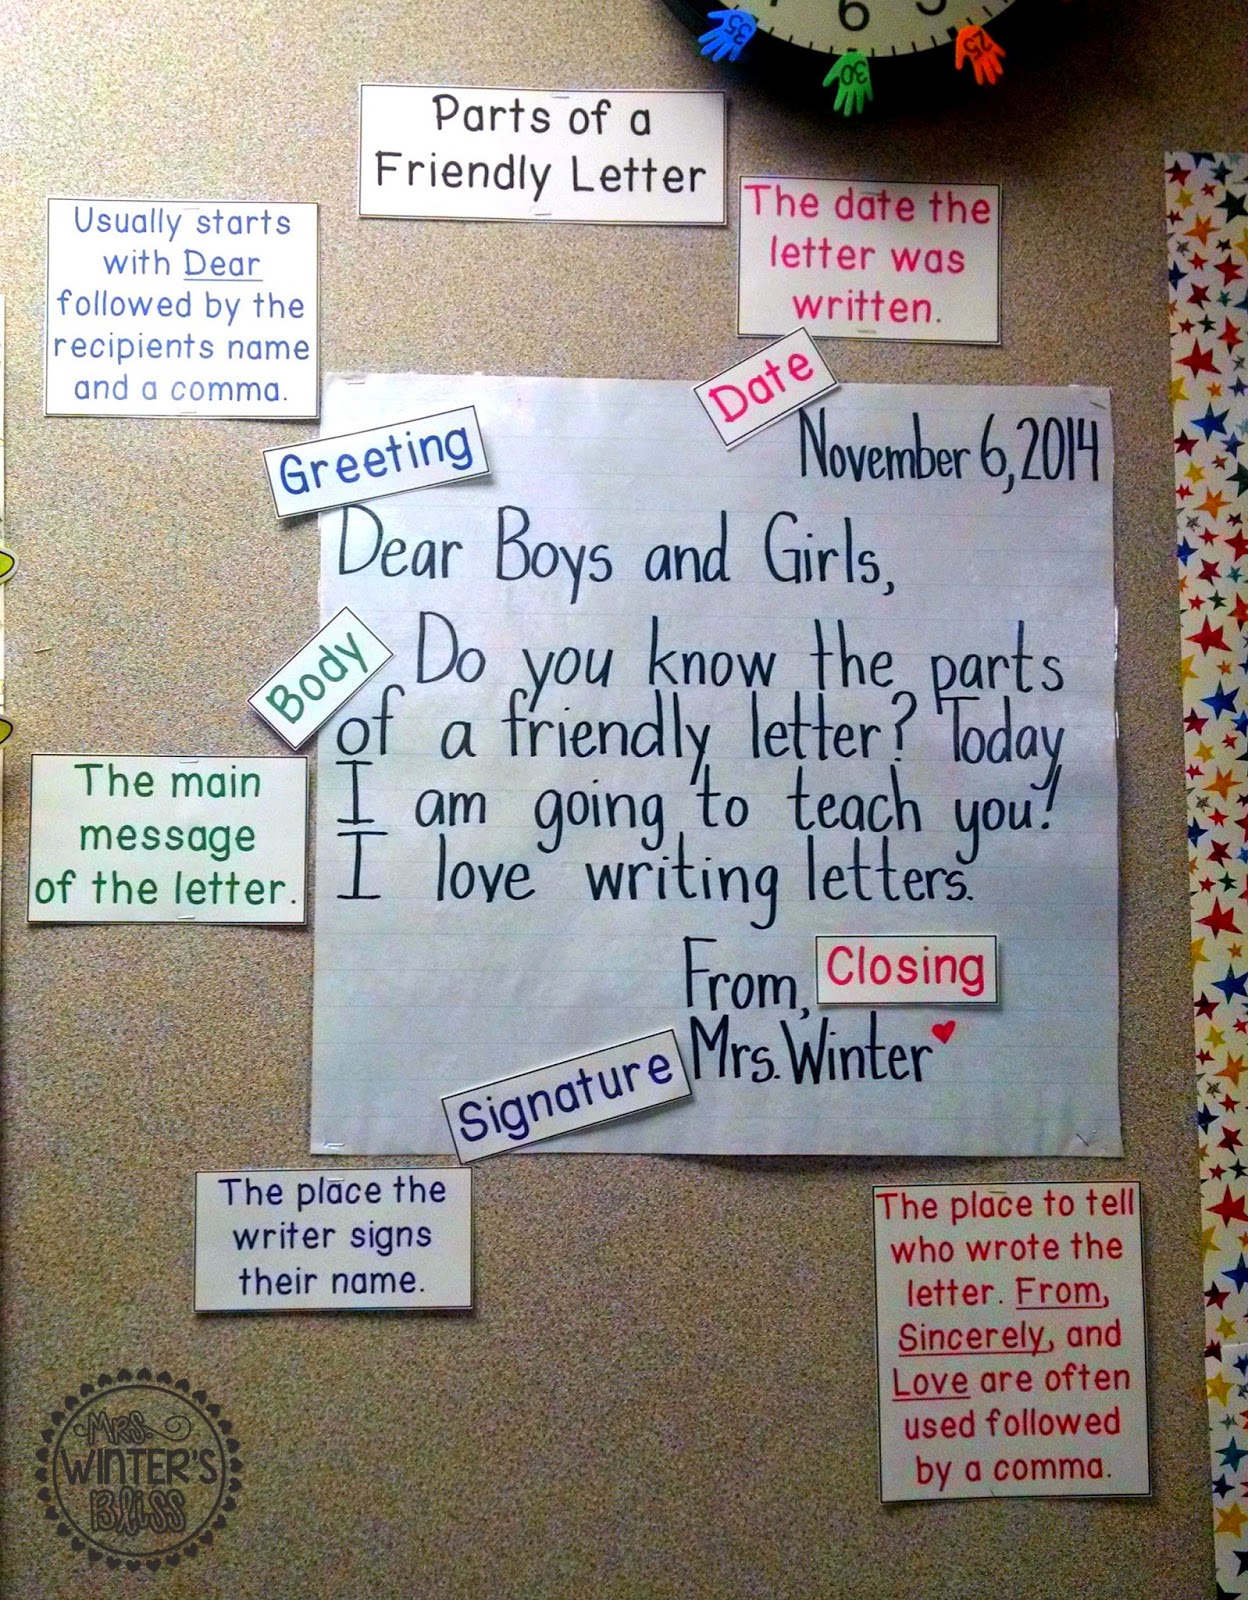 6
35
30
25
Parts of a
Friendly Letter
Usually starts
with Dear
followed by the
recipients name
and a comma.
The date the
letter was
written.
Date
November 6, 2014
Greeting
Dear Boys and Girls,
Body
Do you know the parts
of a friendly letter? Today
I am going to teach you!
I love writing letters.
The main
message
of the letter.
From,
Closing
Mrs. Winter
Signature
The place the
writer signs
their name.
The place to tell
who wrote the
letter. From,
Sincerely, and
Love are often
used followed
by a comma.
MRS.
WINTER'S
Bliss